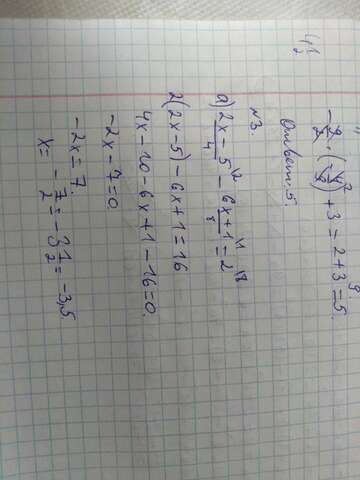 -9/2 · (-4/9) + 3 = 2 + 3 = 5.
Ответ: 5.
№3.
а) (2x - 5)/4 \2 - (6x + 1)/8 \1 = 2 \8
2(2x - 5) - 6x + 1 = 16
4x - 10 - 6x + 1 - 16 = 0.
-2x - 7 = 0.
-2x = 7.
x = -7/2 = -3 1/2 = -3,5